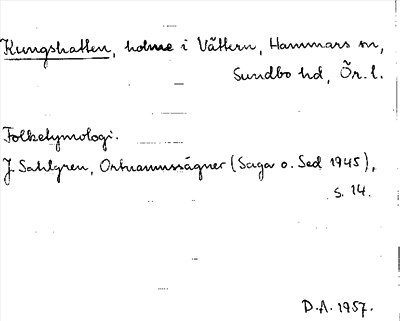 Kungshatten, holme i Vättern, Hammars sn,
Sundbo hd, Ör. l.
Folketymologi.
J. Sahlgren, Ortnamnssägner (Saga o. Sed 1945),
s. 14.
D.A. 1957.